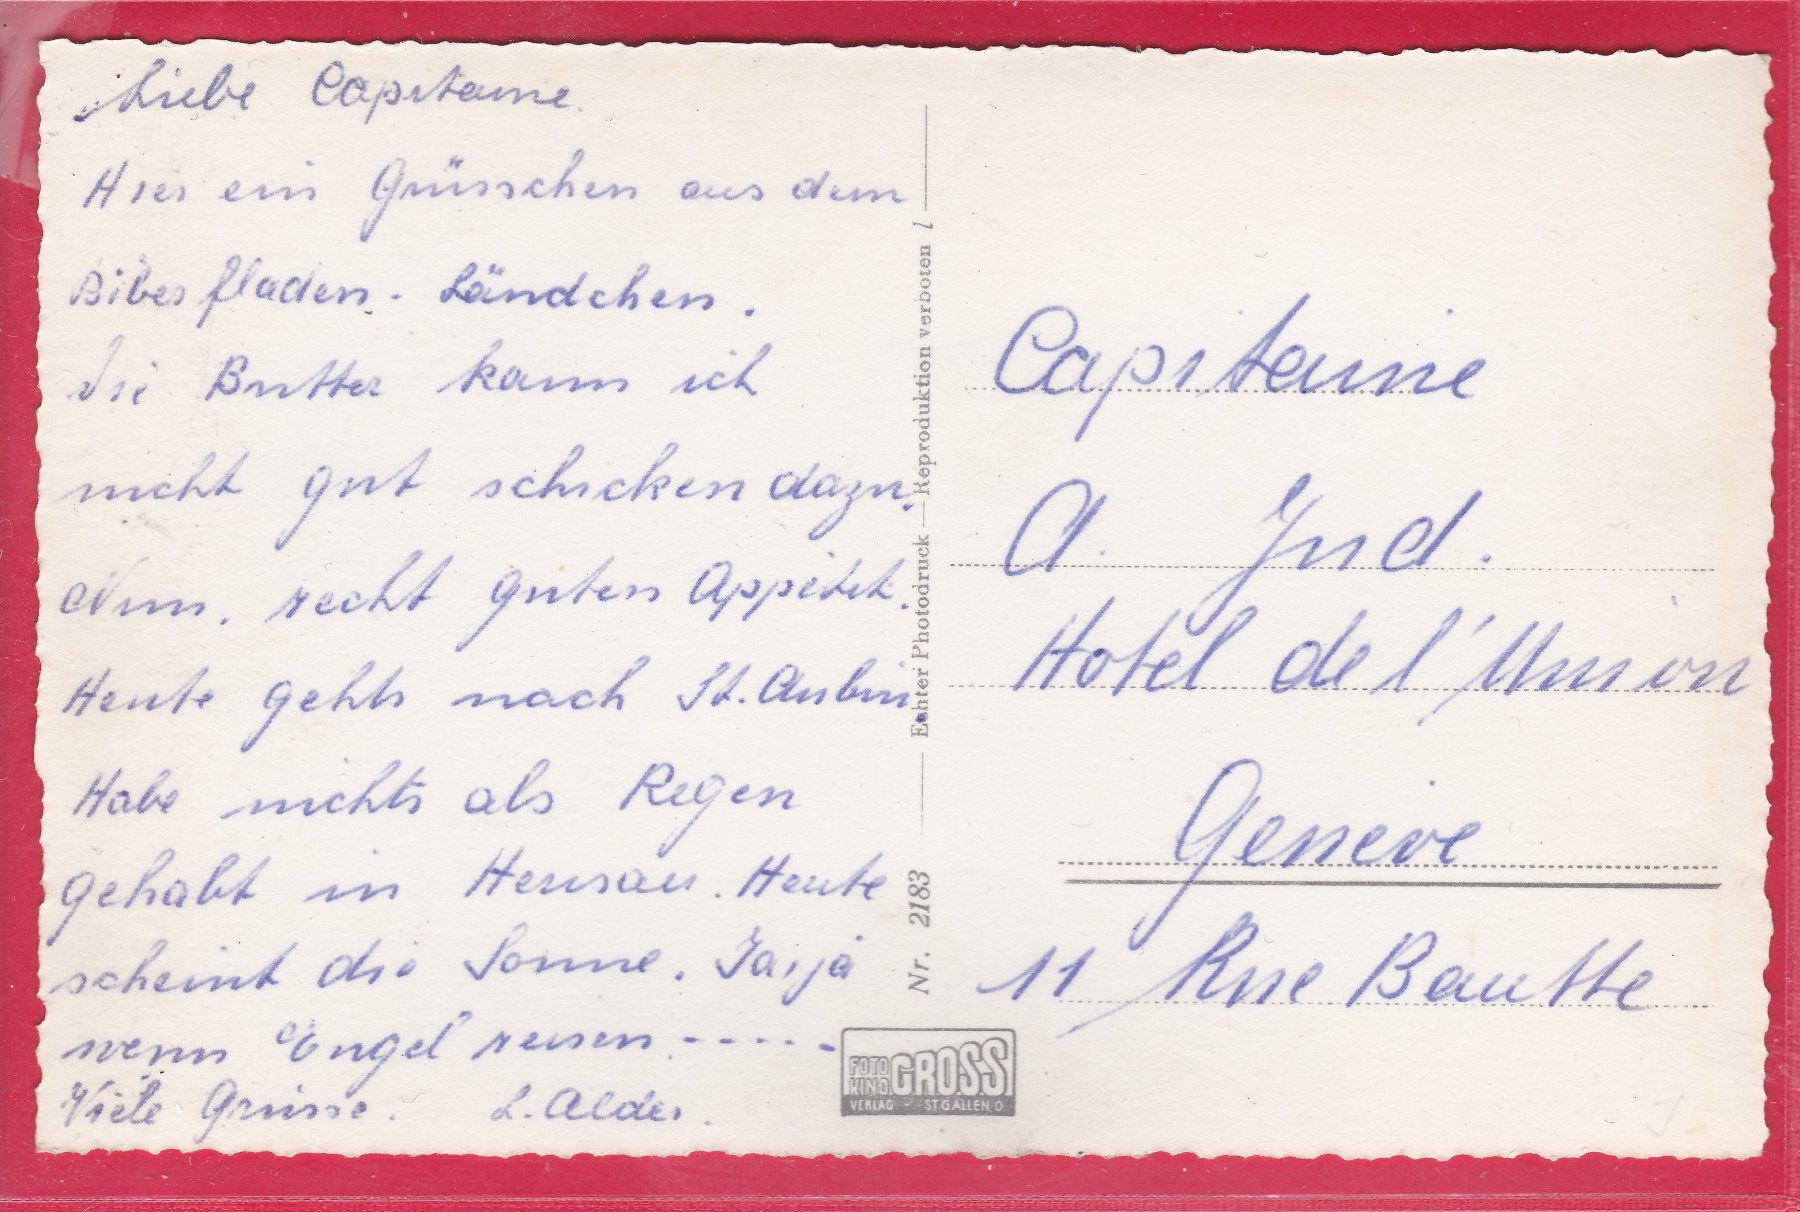 Liebe Capitaine.
Hier ein Grüsschen aus dem
Biberfladen-Ländchen.
Die Butter kann ich
nicht gut schicken dazu.
Nun, recht guten Appetit.
Heute gehts nach St. Aubin.
Habe nichts als Regen
gehabt in Herisau. Heute
scheint die Sonne. Jaja
wenn Engel reisen.-----
Viele Grüsse. L. Alder.
Echter Photodruck — Reproduktion verboten l
Nr. 2183
FOTO KINO GROSS
VERLAG ST GALLEN O
Capitaine
A. Ind.
Hotel de l'Union
Geneve
11 Rue Bautte